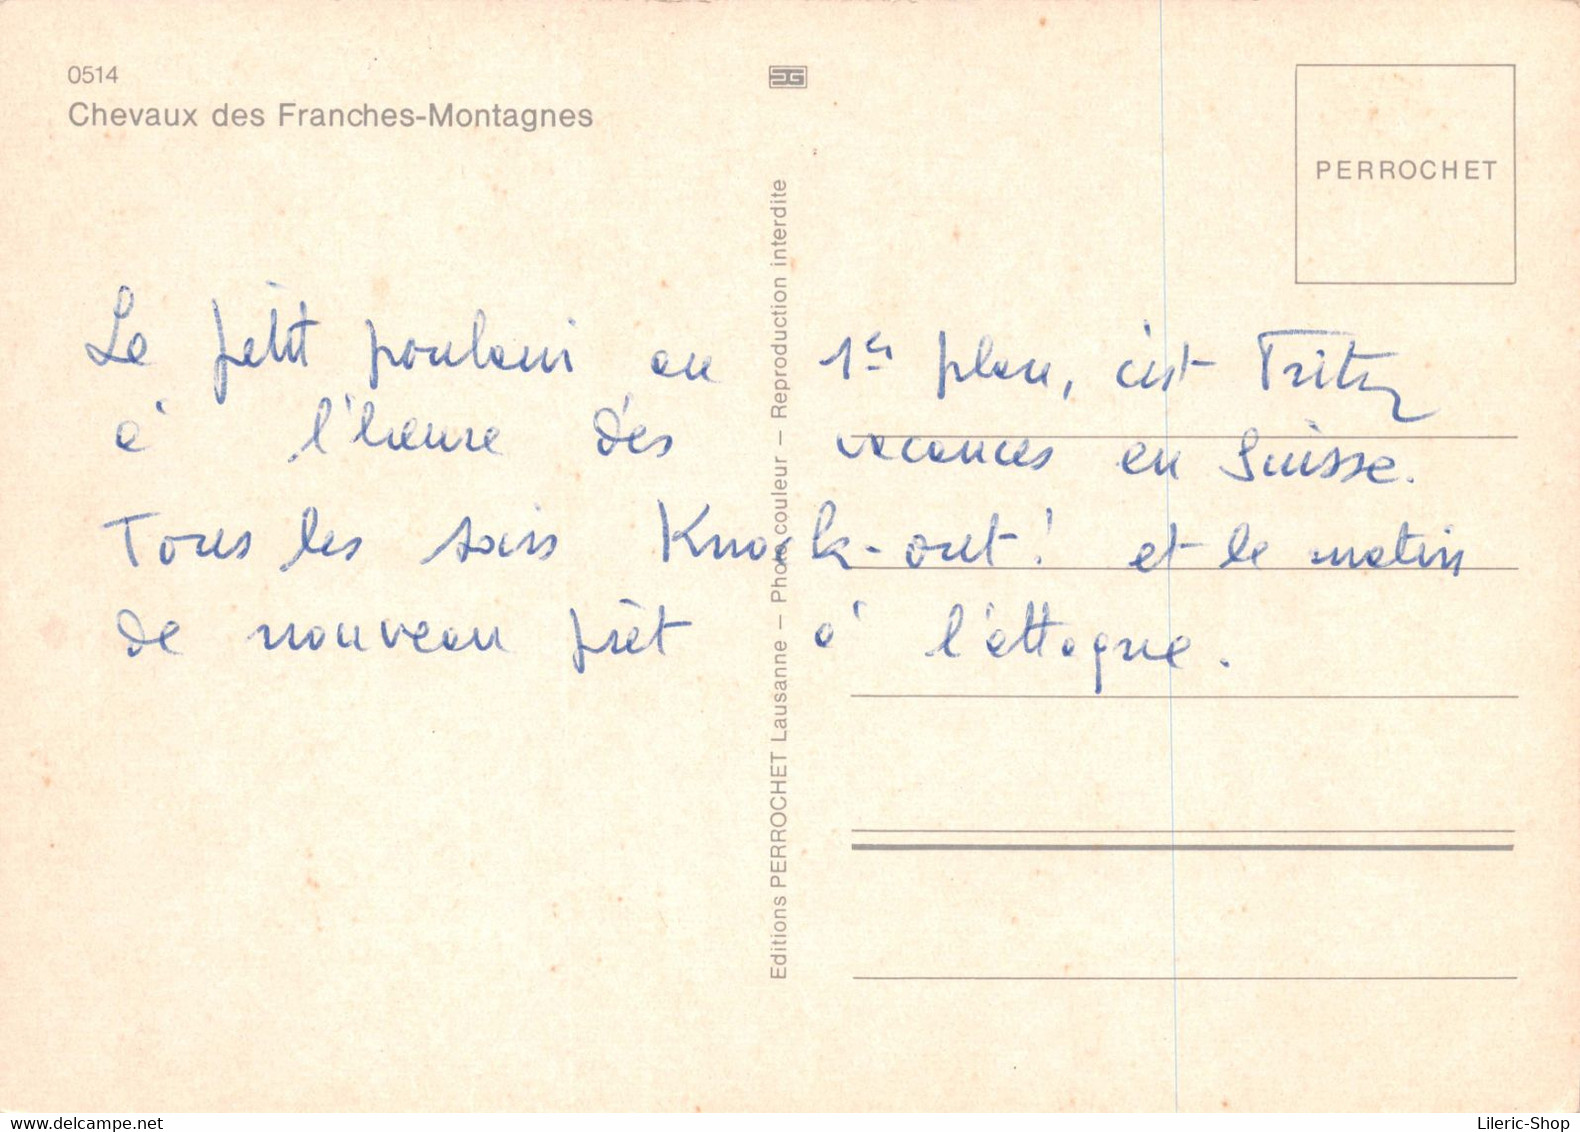 0514
Chevaux des Franches-Montagnes
PERROCHET
Editions PERROCHET Lausanne — Photo couleur — Reproduction interdite
Le petit poulain au 1er plan, c'est Fritz
à l'heure des vacances en Suisse.
Tous les soirs Knock-out! et le matin
de nouveau prêt à l'attaque.
www.delcampe.net
Lileric-Shop